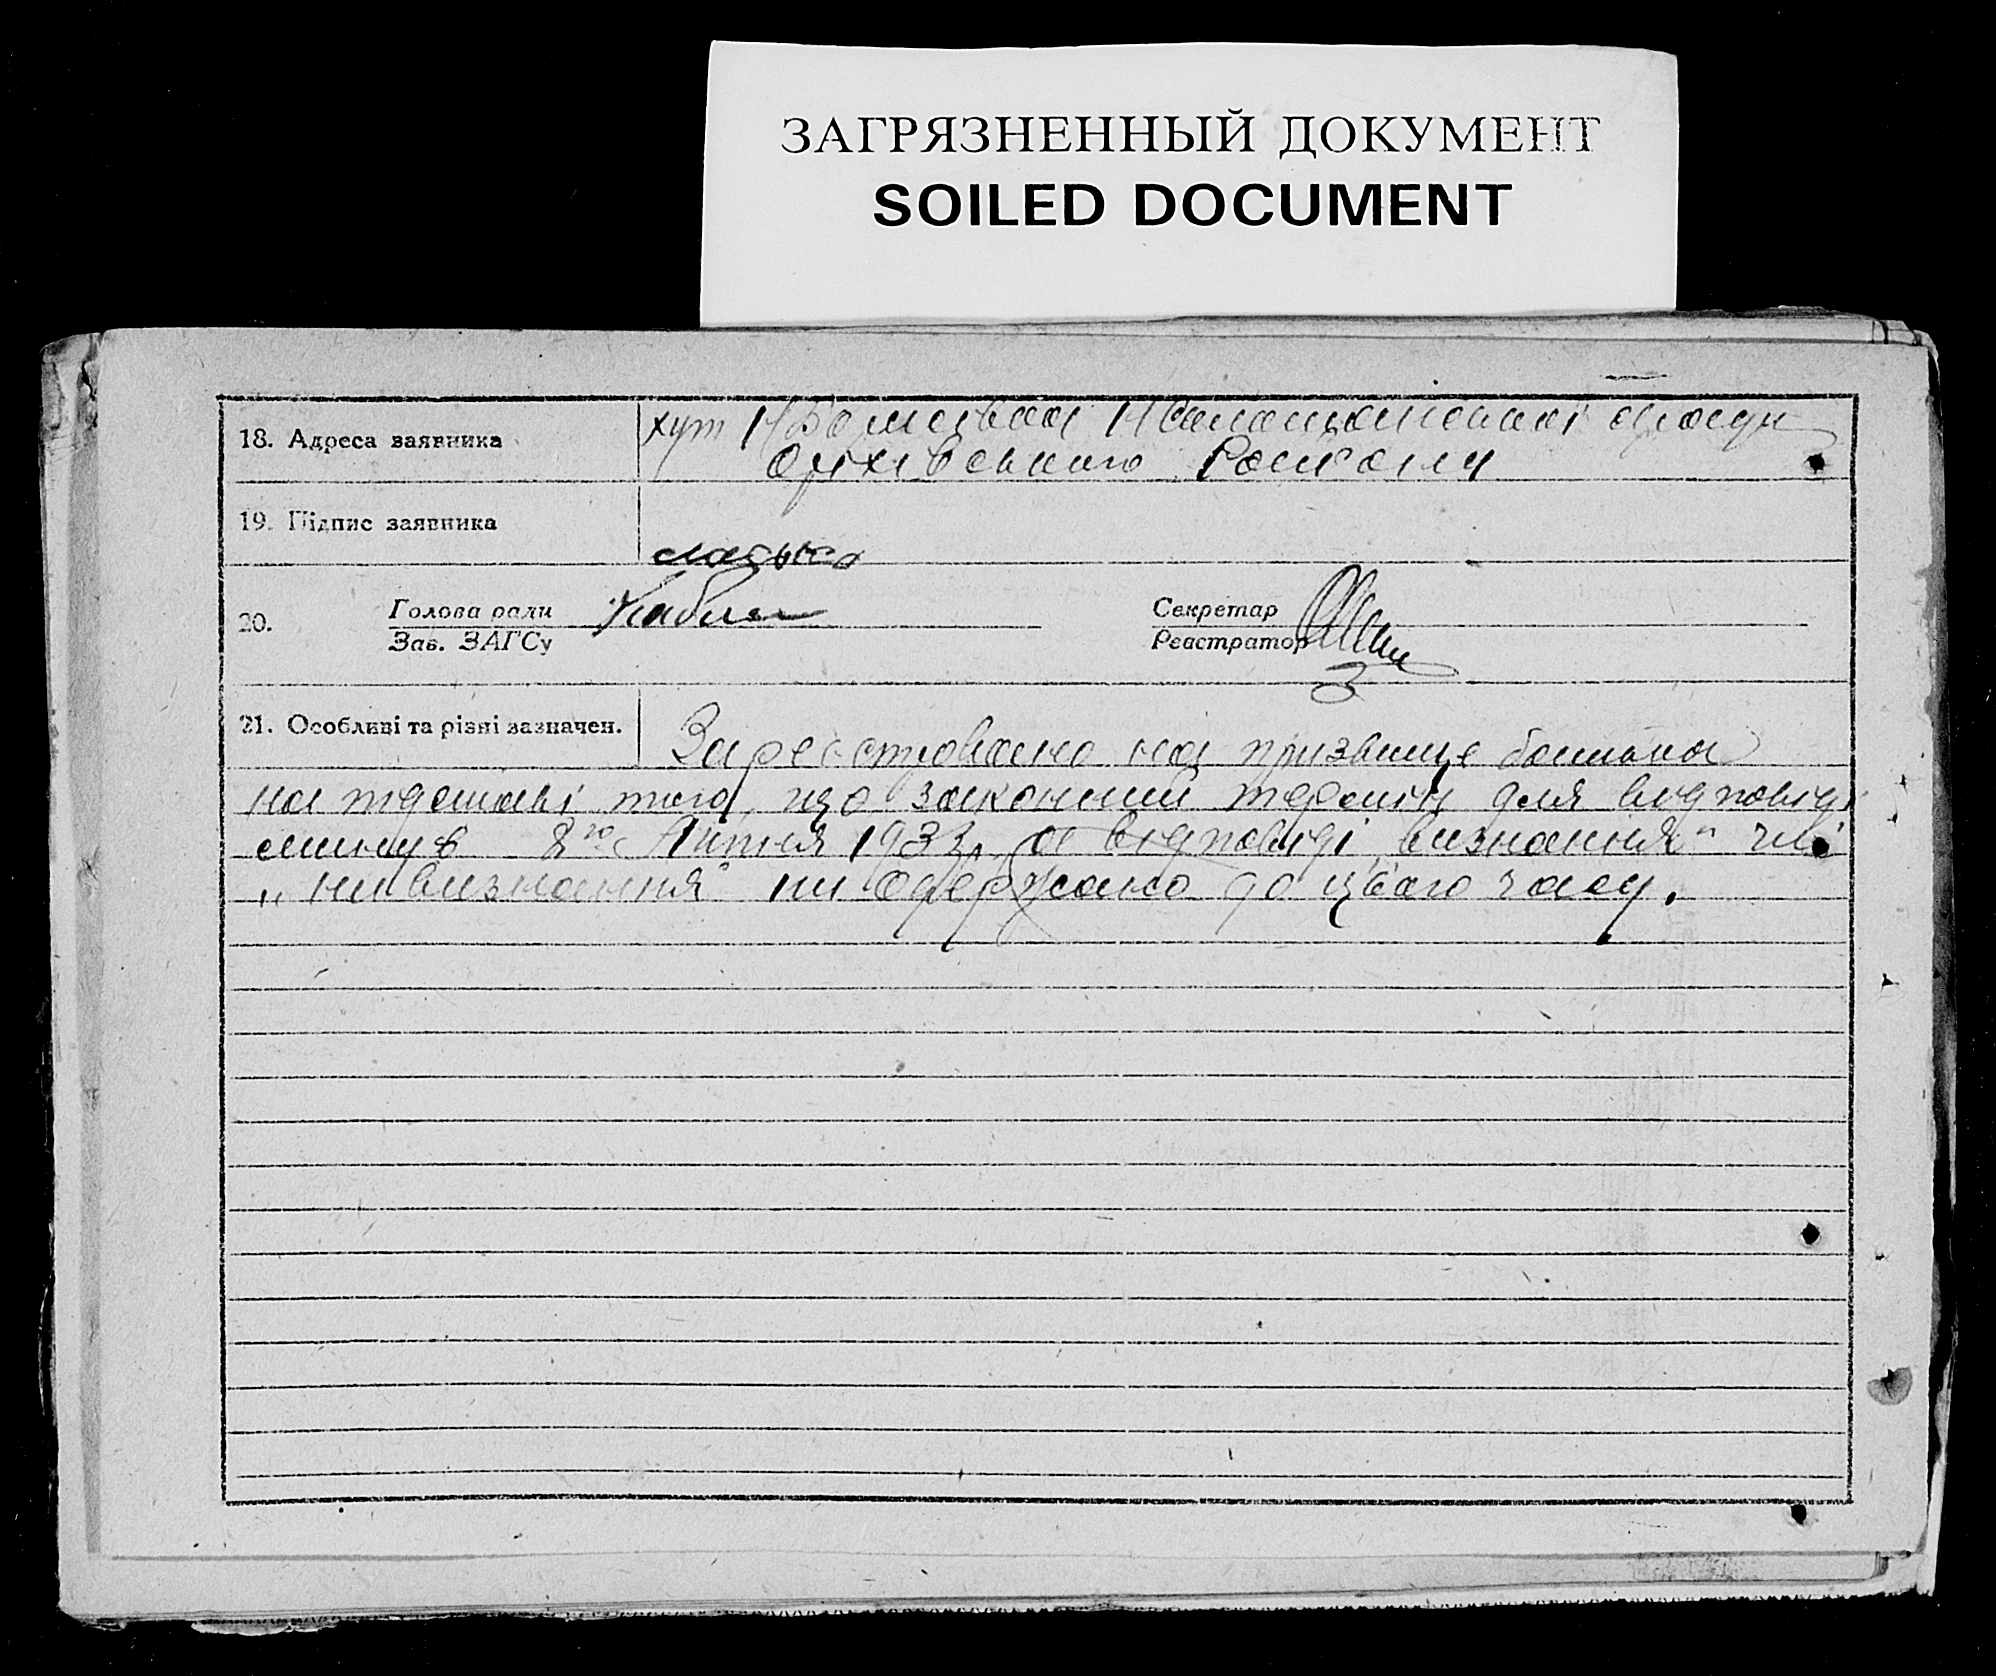 ЗАГРЯЗНЕННЫЙ ДОКУМЕНТ
SOILED DOCUMENT
18. Адреса заявника
хут
Оріхівського Району
19. Підпис заявника
20.
Голова ради
Зав. ЗАГСу
Секретар
Реєстратор
21. Особливі та різні зазначен.
Зареєстровано на призвище батька
на підставі того, що законний термін для відповіді
минув 8го Липня 1933, а відповіді „визнання" чи
„невизнання" ни одержано до цього часу.